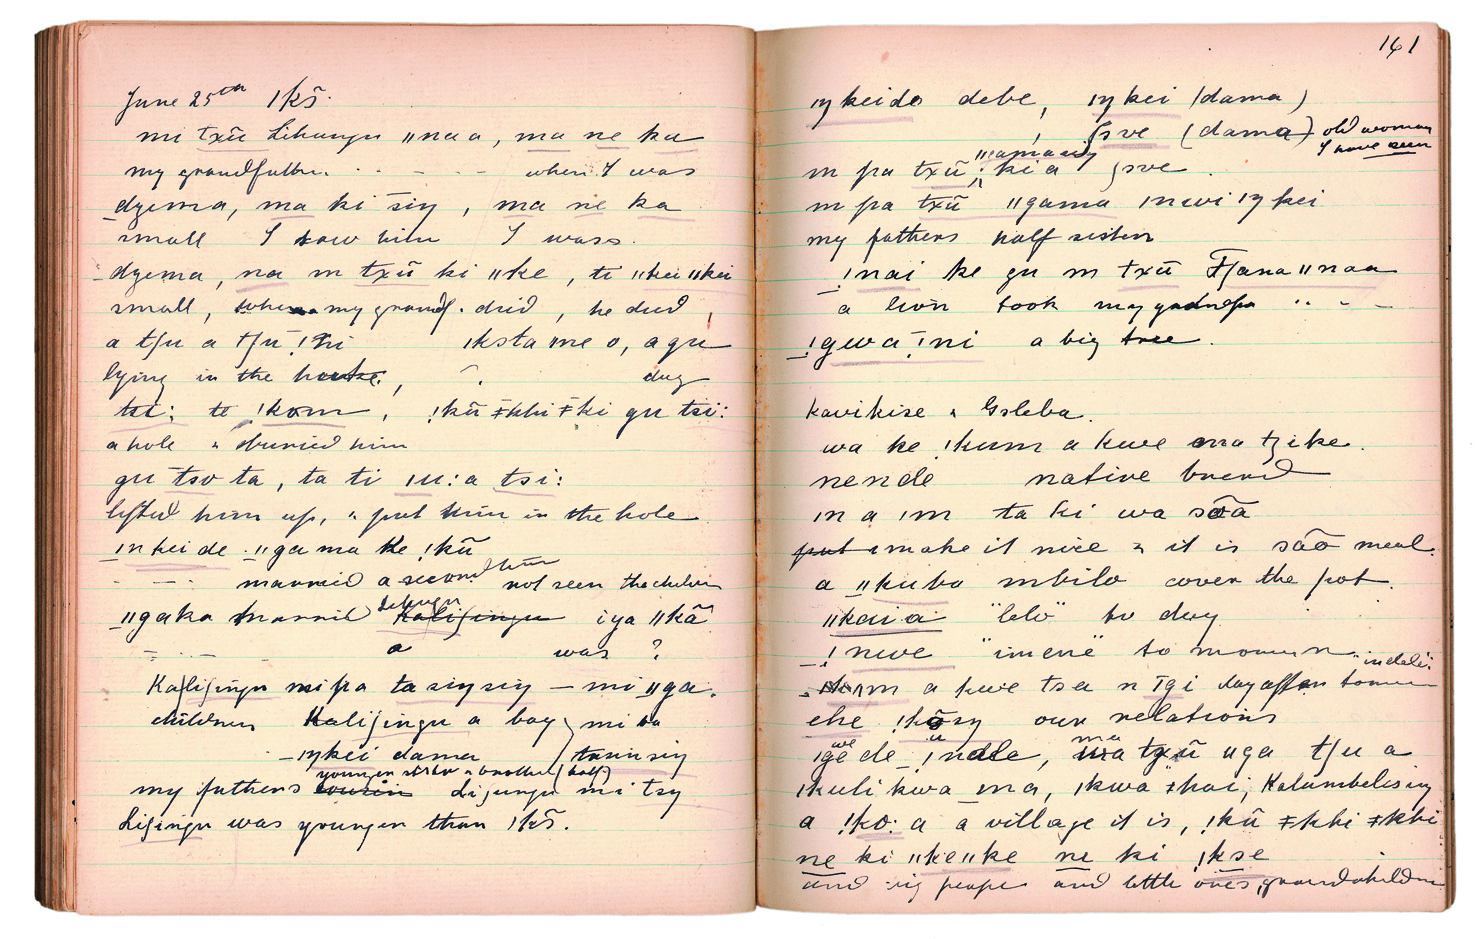 June 25th |kõ.
mi txũ Lihungu ||na a, ma ne ka
my grandfather. - - - - when I was
dzema, ma ki siŋ, ma ne ka
small I saw him I was.
dzema, na m txũ ki ||ke, ti ||kei ||kei
small, when my grandf. died, he died,
a tʃu a tʃu !hi |ksta me o, a gu
lying in the house, dug
tsi: te !kom, !kũ ǂkhi ǂki gu tsi:
a hole & buried him
gu tso ta, ta ti |u: a tsi:
lifted him up, & put him in the hole
|n kei de ||ga ma ke !kũ
- - - married a second time not seen the children
||gaka married Lihungu Kaliʃingu iya ||kã
- - - a was ?
Kaliʃingu mi pa ta siŋ siŋ — mi ||ga.
children Kaliʃingu a boy mi ba
|ŋkei dama tsin siŋ
younger sister & brother (half)
my fathers cousin Liʃingu mi tsy
Liʃingu was younger than |kõ.
161
|ŋ keide debe, |ŋ kei (dama)
ʃsve (dama) old woman
I have seen
||gamasiŋ
m pa txũ; ki a ʃsve.
m pa txũ ||gama |nwi |ŋ kei
my fathers half sister
!nai ke gu m txũ Tʃana ||naa
a lion took my grandpa " - -
!gwa !ni a big tree.
Kavikise & Gsleba.
wa ke !kum a kwe ma tʒi ke.
nende native bread
m a |m ta ki wa sõã
put i make it nice & it is sõõ meal.
a ||kubo mbilo cover the pot.
||kai a "lelo" to day
!nwe "imene" to morrow. indele:
a kwe tsa n !gi day after tomorrow
ehe !kõsŋ our relations
|gẽ de !ndle, ma txũ ||ga tʃu a
|kuli kwa ma, |kwa ǂhai, Kalumbelisiŋ
a !ko: a a village it is, !kũ ǂkhi ǂkhi
ne ki ||ke ||ke ne ki !kse
and big people and little ones, grandchildren